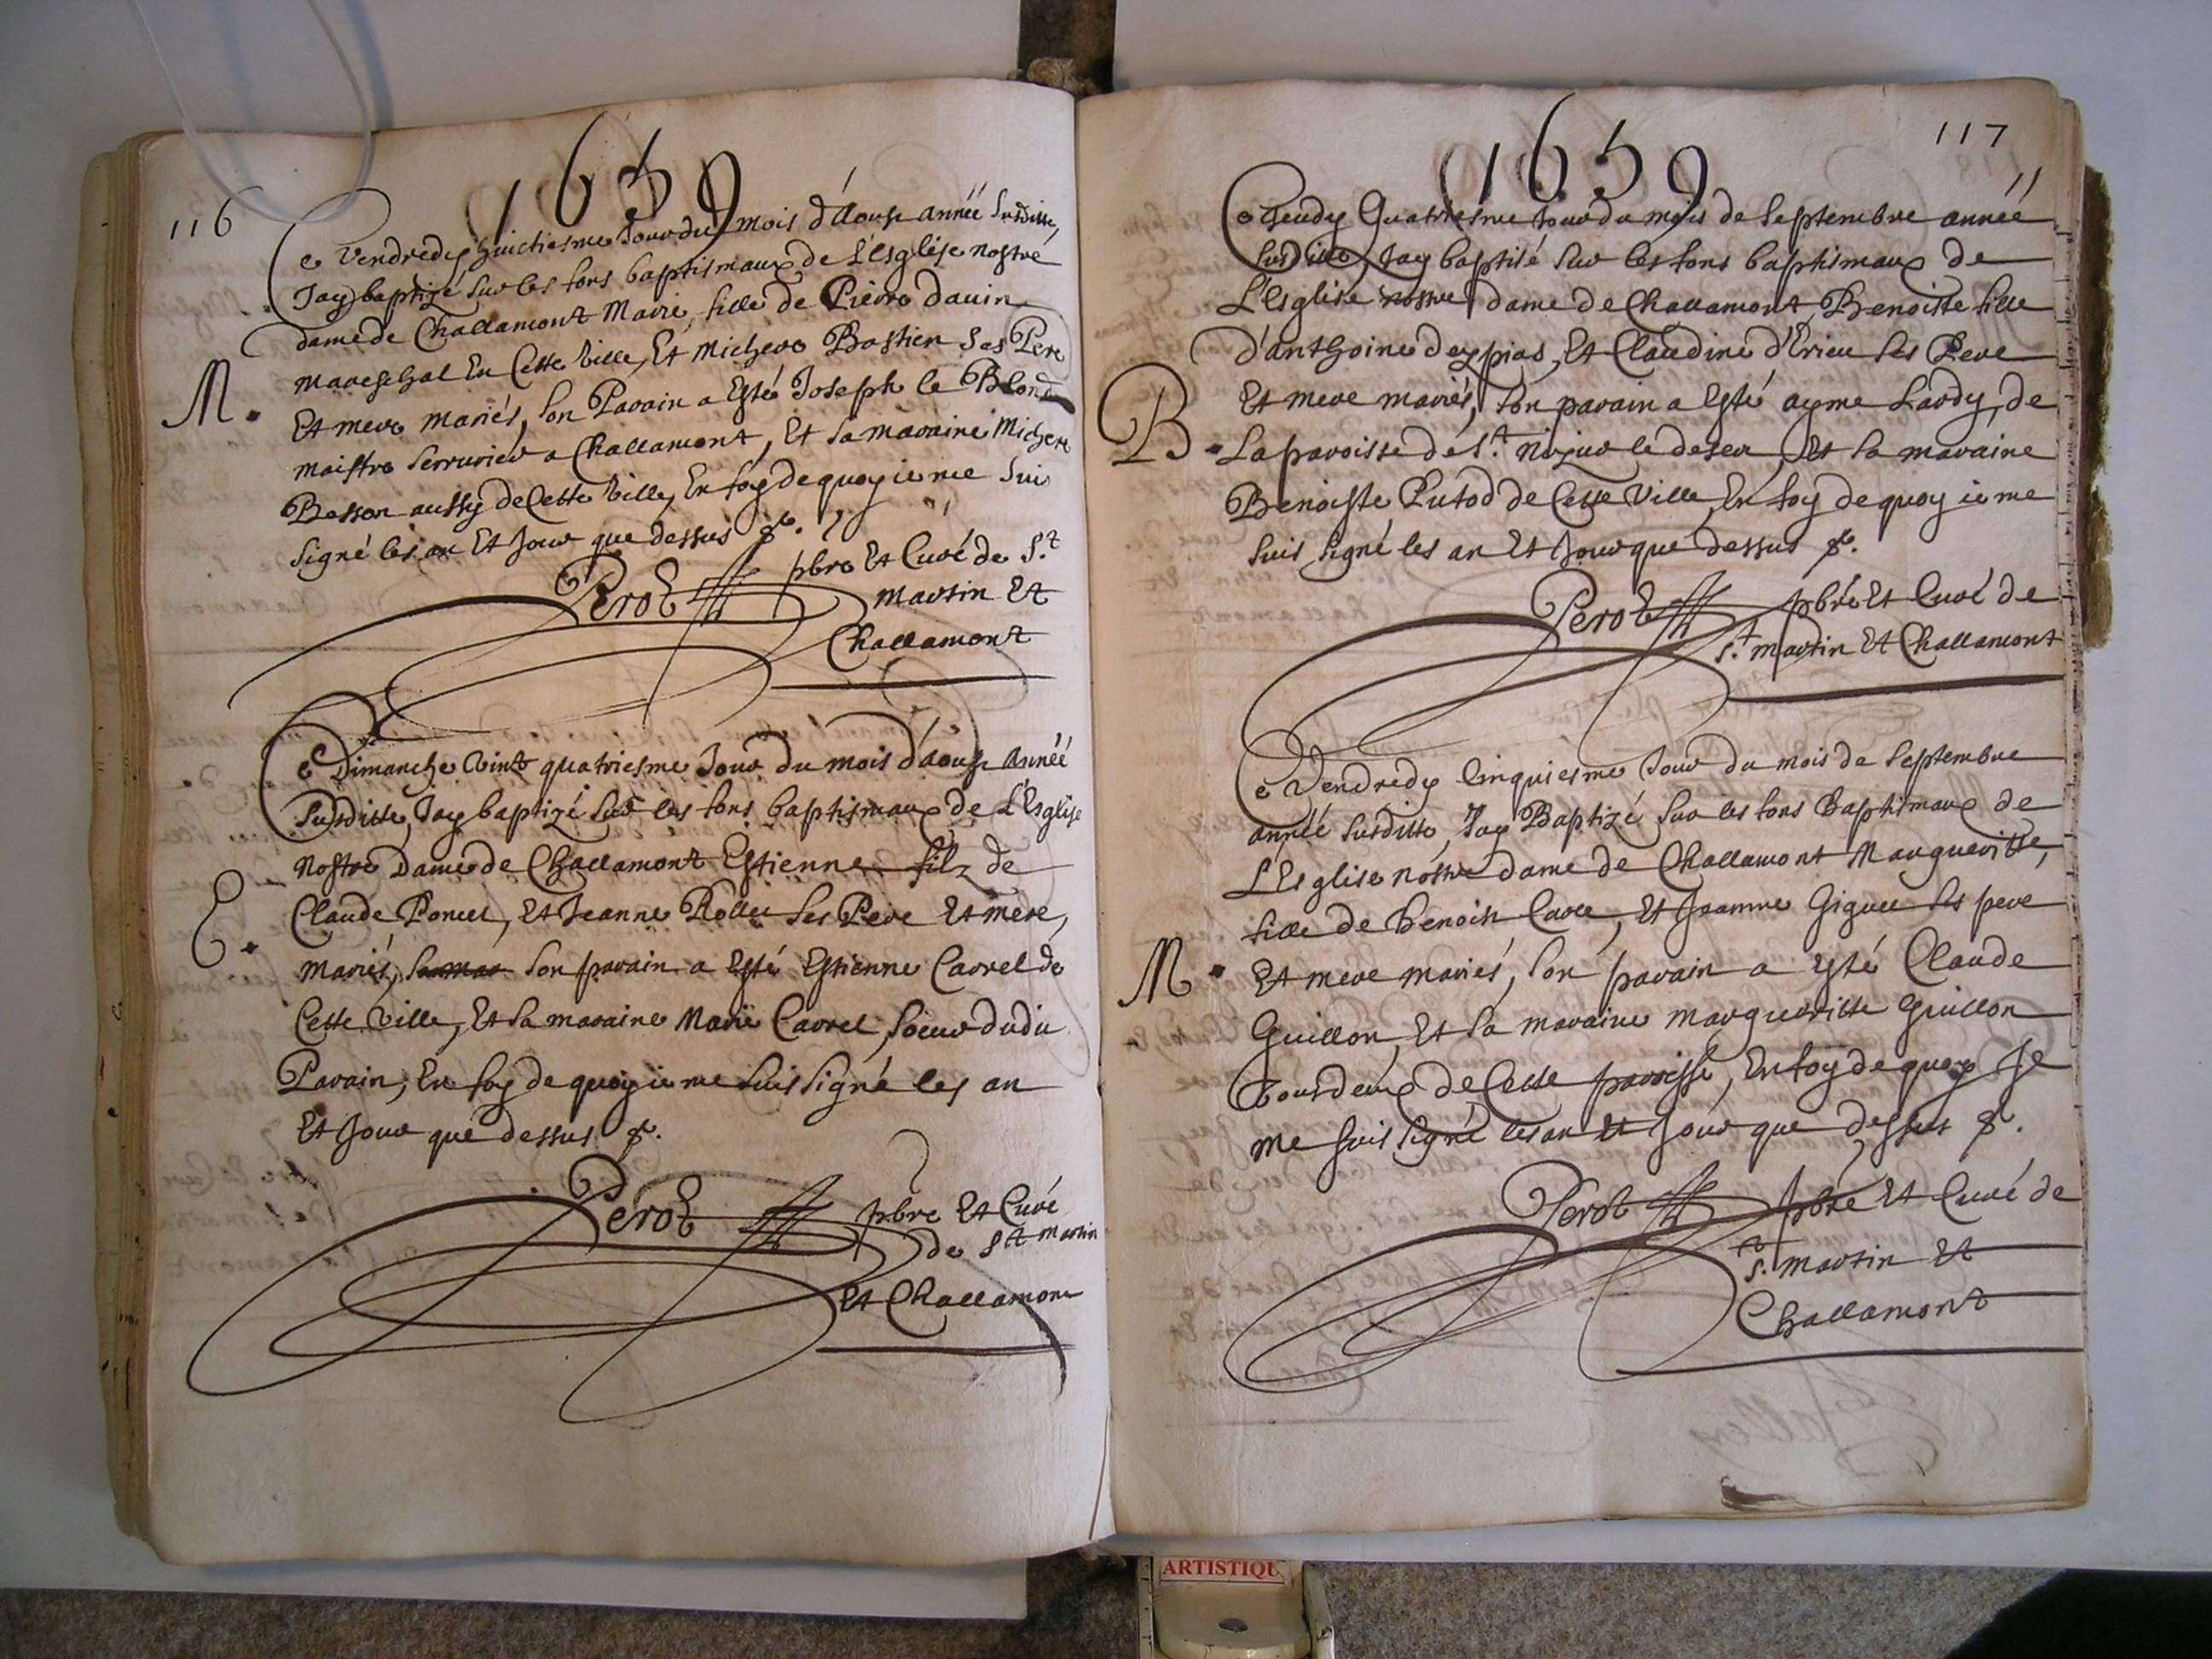 116
1659
Ce Vendredy huictiesme Jour du mois d'Aoust année susditte,
Jay baptizé sur les fons baptismaux de L'Esglise nostre
dame de Challamont Marie, fille de Pierre dauin
mareschal En Cette Ville, Et Michere Bastien Ses Pere
M.
Et mere mariés, son Parain a Esté Joseph le Blond
maistre serrurier a Challamont, Et sa maraine Michere
Besson aussy de Cette Ville, En foy de quoy ie me suis
signé les an Et Jour que dessus &c.
Perot pbre Et Curé de S.t
martin Et
Challamont
Ce Dimanche Vint quatriesme Jour du mois d'aoust Année
susditte, Jay baptizé sur les fons baptismaux de L'Esglise
Nostre Dame de Challamont Estienne filz de
Claude Poncet, Et Jeanne Rollet ses Pere Et mere,
E.
mariés, son parain a Esté Estienne Carrel de
Cette Ville, Et sa maraine Marie Carrel, soeur dudit
Parain, En foy de quoy ie me suis signé les an
Et Jour que dessus &c.
Perot pbre Et Curé
de St martin
Et Challamont
117
1659
Ce Jeudy Quatriesme Jour du mois de Septembre année
susditte, Jay baptisé sur les fons baptismaux de
L'Esglise nostre dame de Challamont, Benoiste fille
d'anthoine deypias, Et Claudine d'Erieu ses Pere
Et mere mariés, son parain a Esté ayme Lardy, de
B.
La paroisse de S.t Nizier le deser, Et sa maraine
Benoiste Putod de Cette Ville, En foy de quoy ie me
suis signé les an Et Jour que dessus &c.
Perot pbre Et Curé de
S.t martin Et Challamont
Ce Vendredy Cinquiesme Jour du mois de Septembre
année susditte, Jay Baptizé sur les fons Baptismaux de
L'Esglise nostre dame de Challamont Margueritte,
fille de Benoist, Et Jeanne ses pere
M.
Et mere mariés, son parain a Esté Claude
Guillon, Et sa maraine margueritte Guillon
tous deux de Cette paroisse, En foy de quoy Je
me suis signé les an Et Jour que dessus &c.
Perot pbre Et Curé de
S.t martin Et
Challamont
ARTISTIQU